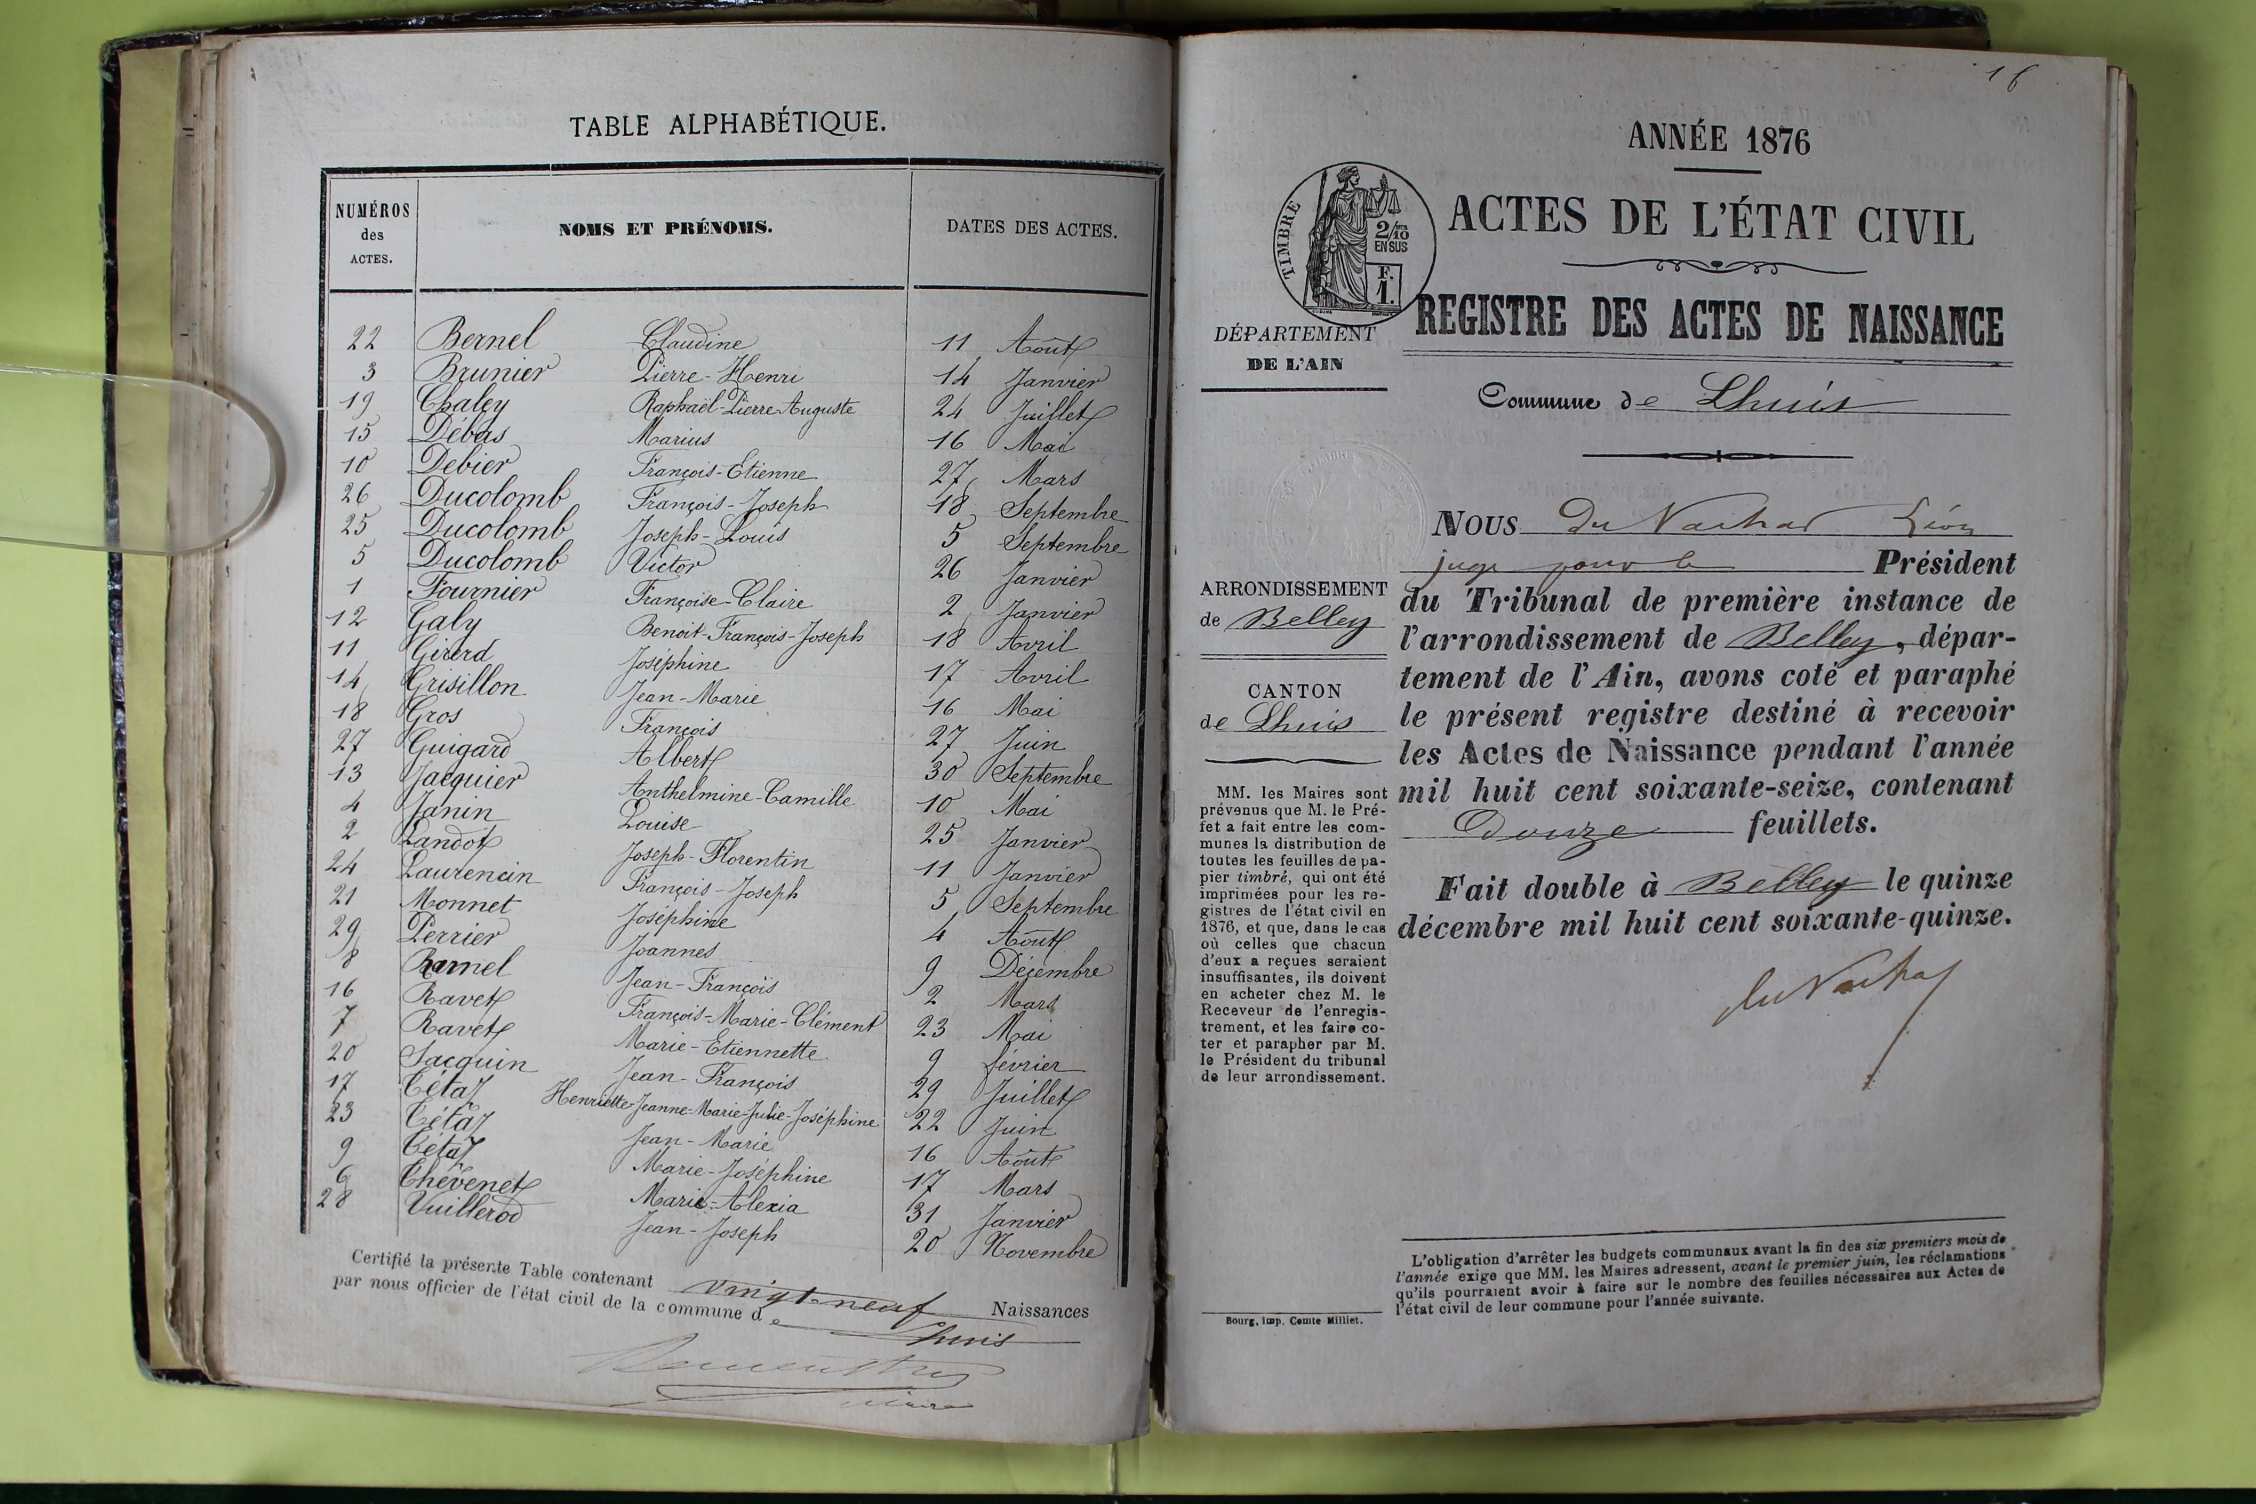 TABLE ALPHABÉTIQUE.
NUMÉROS des ACTES. NOMS ET PRÉNOMS. DATES DES ACTES.
22 Bernel Claudine 11 Août
3 Brunier Pierre-Henri 14 Janvier
19 Chaley Raphaël-Pierre Auguste 24 Juillet
15 Débas Marius 16 Mai
10 Debier François-Etienne 27 Mars
26 Ducolomb François-Joseph 18 Septembre
25 Ducolomb Joseph-Louis 5 Septembre
5 Ducolomb Victor 26 Janvier
1 Fournier Françoise-Claire 2 Janvier
12 Galy Benoit-François-Joseph 18 Avril
11 Girerd Joséphine 17 Avril
14 Grisillon Jean-Marie 16 Mai
18 Gros François 27 Juin
27 Guigard Albert 30 Septembre
13 Jacquier Anthelmine-Camille 10 Mai
4 Janin Louise 25 Janvier
2 Landot Joseph-Florentin 11 Janvier
24 Laurencin François-Joseph 5 Septembre
21 Monnet Joséphine 4 Août
29 Perrier Joannes 9 Décembre
8 Ramel Jean-François 2 Mars
16 Ravet François-Marie-Clément 23 Mai
7 Ravet Marie-Etiennette 9 février
20 Sacquin Jean-François 29 Juillet
17 Tétaz Henriette-Jeanne-Marie-Julie-Joséphine 22 Juin
23 Tétaz Jean-Marie 16 Août
9 Tétaz Marie-Joséphine 17 Mars
6 Thévenet Marie-Alexia 31 Janvier
28 Vuillerod Jean-Joseph 20 Novembre
Certifié la présente Table contenant vingt-neuf Naissances
par nous officier de l'état civil de la commune de Lhuis
16
ANNÉE 1876
ACTES DE L'ÉTAT CIVIL
REGISTRE DES ACTES DE NAISSANCE
TIMBRE
2/10
EN SUS
F.
1.
DÉPARTEMENT
DE L'AIN
Commune de Lhuis
Nous Du Vachat Léon
juge pour le Président
du Tribunal de première instance de
l'arrondissement de Belley, dépar-
tement de l'Ain, avons coté et paraphé
le présent registre destiné à recevoir
les Actes de Naissance pendant l'année
mil huit cent soixante-seize, contenant
Douze feuillets.
Fait double à Belley le quinze
décembre mil huit cent soixante-quinze.
du Vachat
ARRONDISSEMENT
de Belley
CANTON
de Lhuis
MM. les Maires sont
prévenus que M. le Pré-
fet a fait entre les com-
munes la distribution de
toutes les feuilles de pa-
pier timbré, qui ont été
imprimées pour les re-
gistres de l'état civil en
1876, et que, dans le cas
où celles que chacun
d'eux a reçues seraient
insuffisantes, ils doivent
en acheter chez M. le
Receveur de l'enregis-
trement, et les faire co-
ter et parapher par M.
le Président du tribunal
de leur arrondissement.
Bourg, imp. Comte-Milliet.
L'obligation d'arrêter les budgets communaux avant la fin des six premiers mois de
l'année exige que MM. les Maires adressent, avant le premier juin, les réclamations
qu'ils pourraient avoir à faire sur le nombre des feuilles nécessaires aux Actes de
l'état civil de leur commune pour l'année suivante.